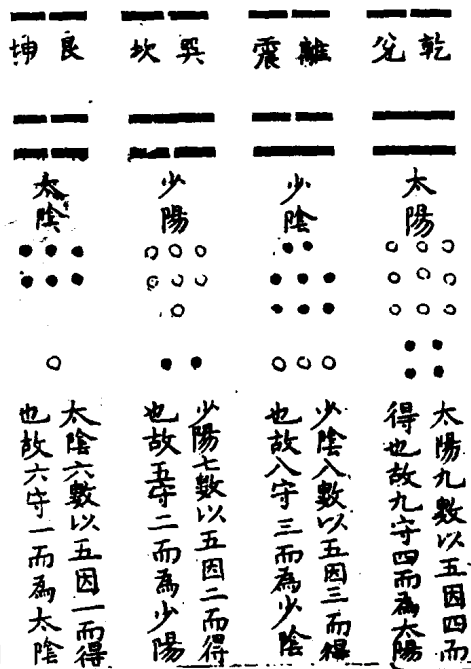 乾
兌
離
震
巽
坎
艮
坤
太陽
少陰
少陽
太陰
太陽九數以五因四而
得也故九守四而為太陽
少陰八數以五因三而得
也故八守三而為少陰
少陽七數以五因二而得
也故五守二而為少陽
太陰六數以五因一而得
也故六守一而為太陰